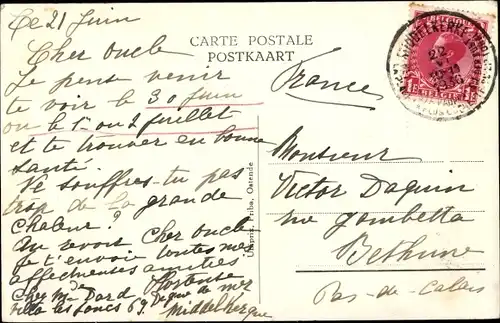 Ce 21 Juin
Cher oncle
Je pense venir
te voir le 30 juin
ou le 1er ou 2 juillet
et te trouver en bonne
santé.
Ne souffres-tu pas
trop de la grande
chaleur?
Au revoir Cher oncle
Je t'envoie toutes mes
affectueuses amitiés
Hortense
Cher Mme Dard
villa les Joncs 69 Digue de mer
Middelkerque
CARTE POSTALE
POSTKAART
France
Monsieur
Victor Daquin
rue Gambetta
Bethune
Pas-de-Calais
MIDDELKERKE
BELGIQUE
1F BELGIË 1F